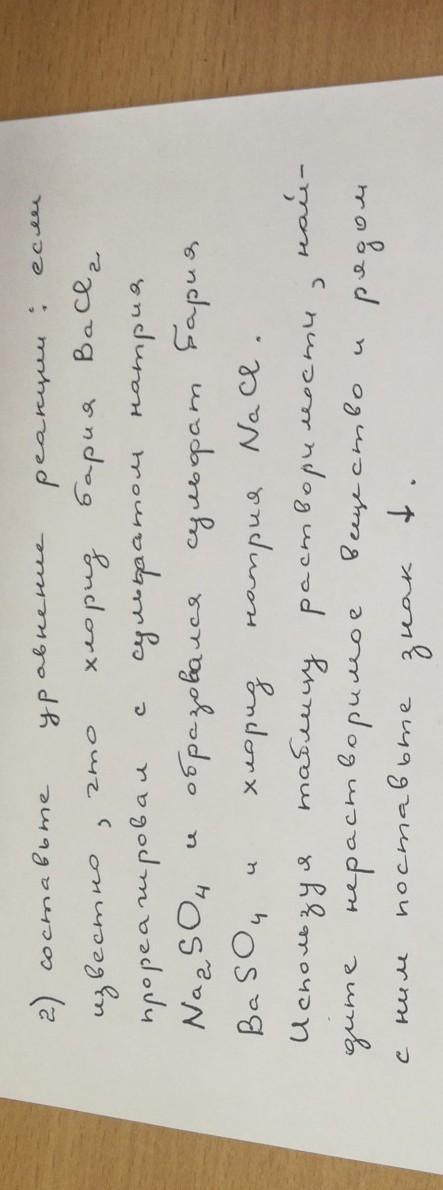 2) составьте уравнение реакции: если
известно, что хлорид бария BaCl2
прореагировал с сульфатом натрия
Na2SO4 и образовался сульфат бария
BaSO4 и хлорид натрия NaCl.
Используя таблицу растворимости, най-
дите нерастворимое вещество и рядом
с ним поставьте знак ↓.